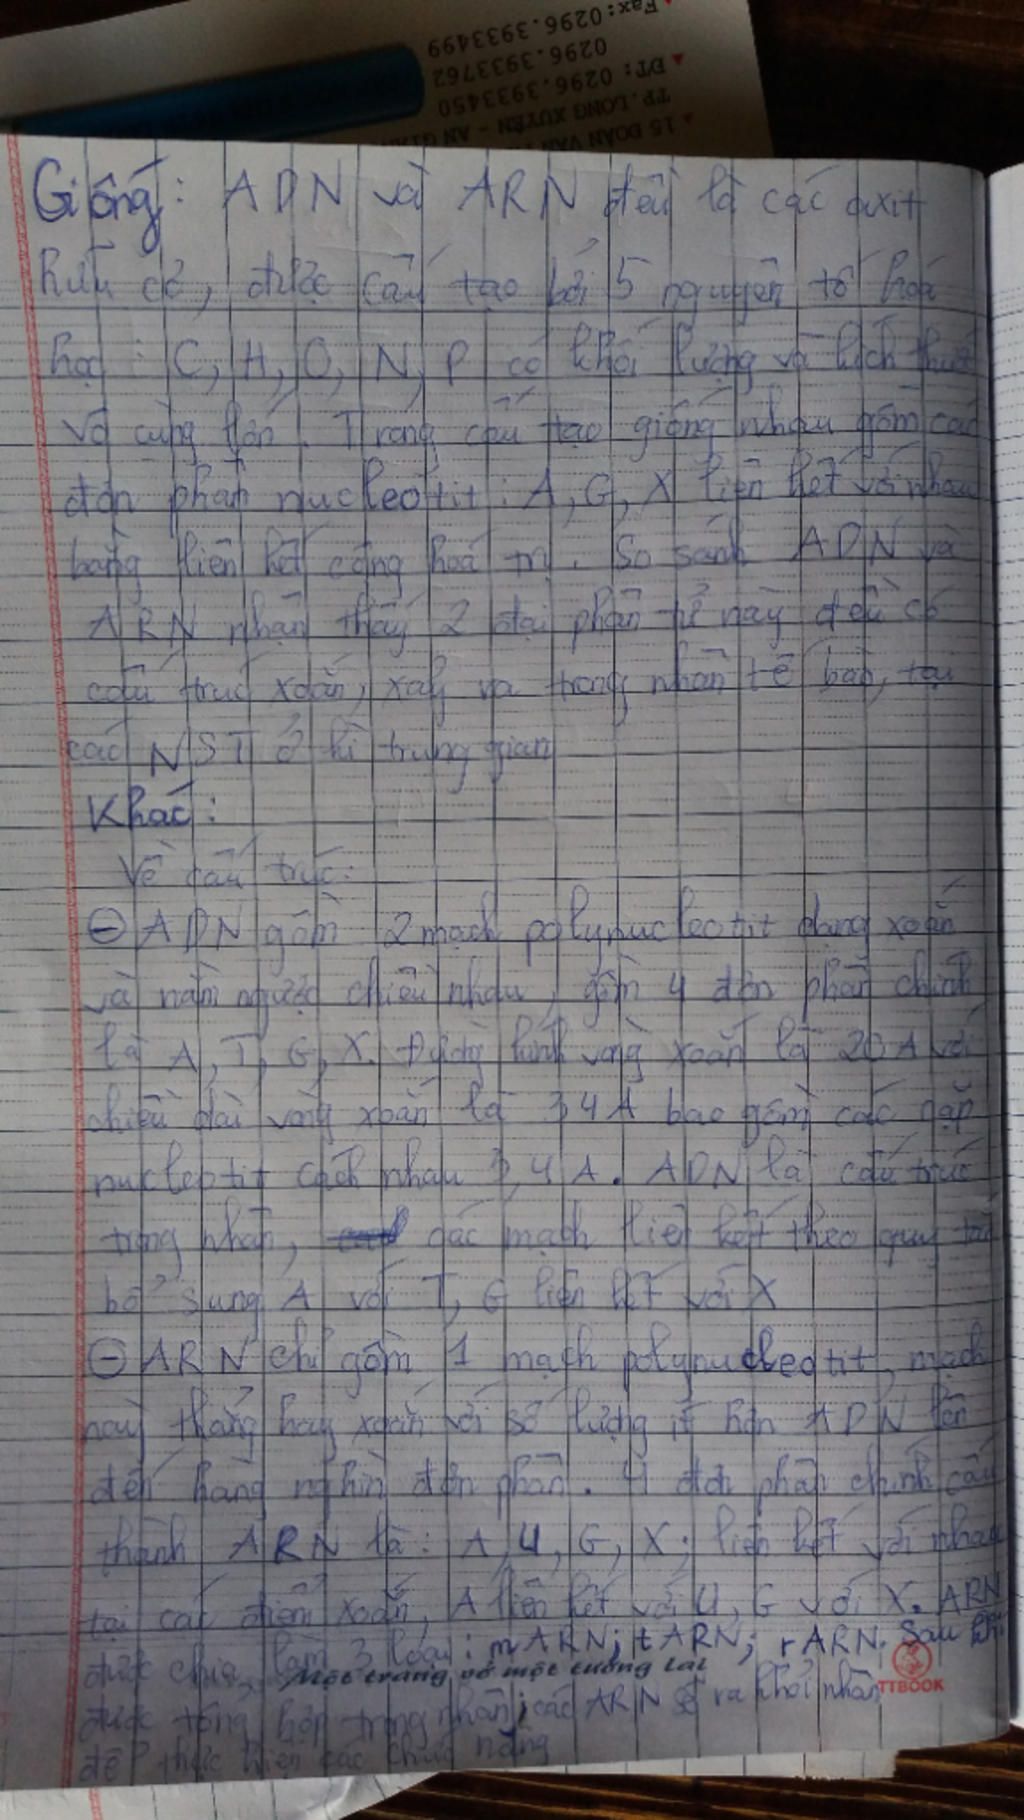 Fax: 0296.3933499
0296.3933762
ĐT: 0296.3933450
TP. LONG XUYÊN - AN GIA
15 ĐOÀN VĂN
Giống: ADN và ARN đều là các axit
hữu cơ, được cấu tạo bởi 5 nguyên tố hoá
học : C, H, O, N, P có khối lượng và kích thước
vô cùng lớn. Trong cấu tạo giống nhau gồm các
đơn phân nucleotit : A, G, X liên kết với nhau
bằng liên kết cộng hoá trị. So sánh ADN và
ARN nhận thấy 2 đại phân tử này đều có
cấu trúc xoắn, xảy ra trong nhân tế bào, tại
các NST ở kì trung gian
Khác:
Về cấu trúc:
- ADN gồm 2 mạch polynucleotit dạng xoắn
và nằm ngược chiều nhau, gồm 4 đơn phân chính
là A, T, G, X. Đường kính vòng xoắn là 20A với
chiều dài vòng xoắn là 34A bao gồm các cặp
nucleotit cách nhau 3,4A. ADN là cấu trúc
trong nhân, các mạch liên kết theo quy tắc
bổ sung A với T, G liên kết với X
- ARN chỉ gồm 1 mạch polynucleotit, mạch
này thẳng hay xoắn với số lượng ít hơn ADN lên
đến hàng nghìn đơn phân. 4 đơn phân chính cấu
thành ARN là: A, U, G, X; liên kết với nhau
tại các điểm xoắn, A liên kết với U, G với X. ARN
được chia làm 3 loại: mARN; tARN; rARN. Sau khi
Một trang vở một tương lai
TTBOOK
được tổng hợp trong nhân, các ARN sẽ ra khỏi nhân
để thực hiện các chức năng